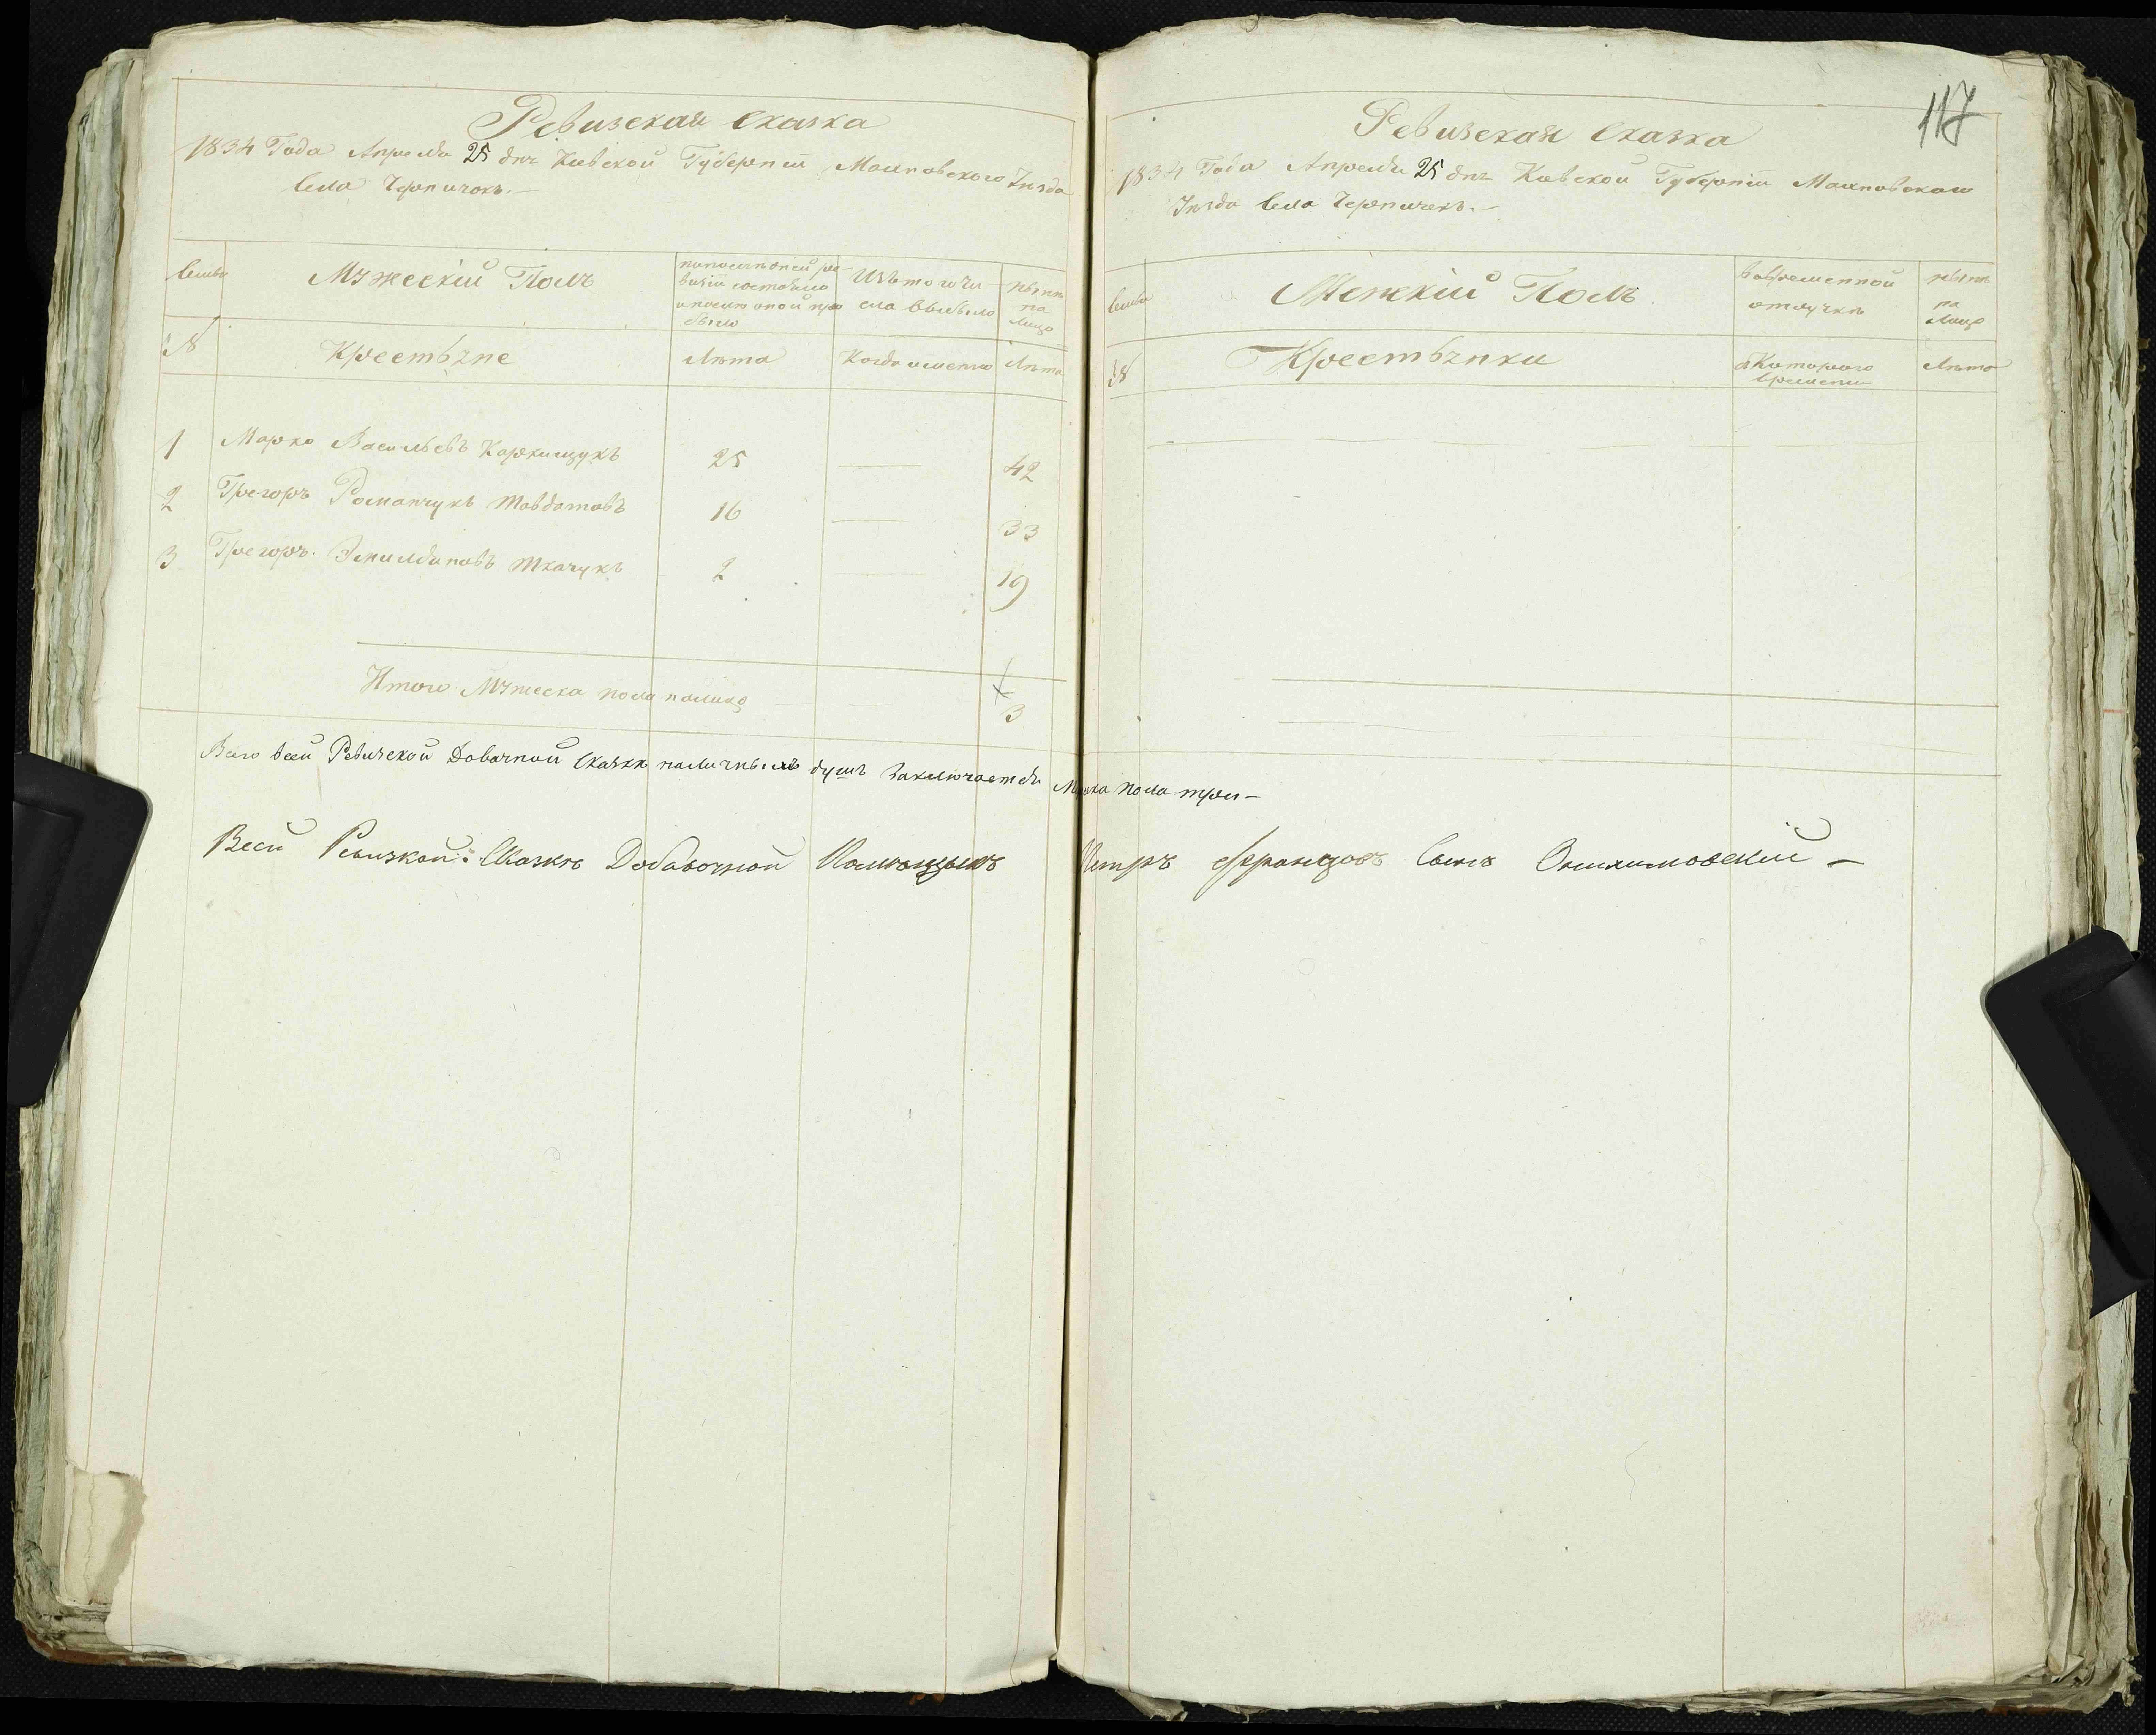 Ревизская сказка
1834 Года Апреля 25 дня Киевской Губерніи Махновского Уезда
села Черпичокъ.—
семьи
Мужескій Полъ
попоследней ре
визіи состояло
и после оной при
было
Изътого чи
сла выбыло
ныне
на
лицо
№
Крестьяне
Лета
Когда именно
Лета
1 Марко Васильевъ Каркищукъ 25 — 42
2 Грегоръ Романчукъ 16 — 33
3 Грегоръ Ткачукъ 2 — 19
Итого Мужеска пола налицо 3
117
Ревизская сказка
1834 Года Апреля 25 дня Киевской Губерніи Махновскаго
Уезда села Черпичекъ.—
семьи
Женскій Полъ
Вовременной
отлучке
ныне
на
лицо
№
Крестьянки
скоторого
времени
Лета
Всего всей Ревизской Добачной сказке наличныхъ душъ заключается Мужска пола три—
Всей Ревизкой Сказке Добавочной Петръ Францовъ сынъ —